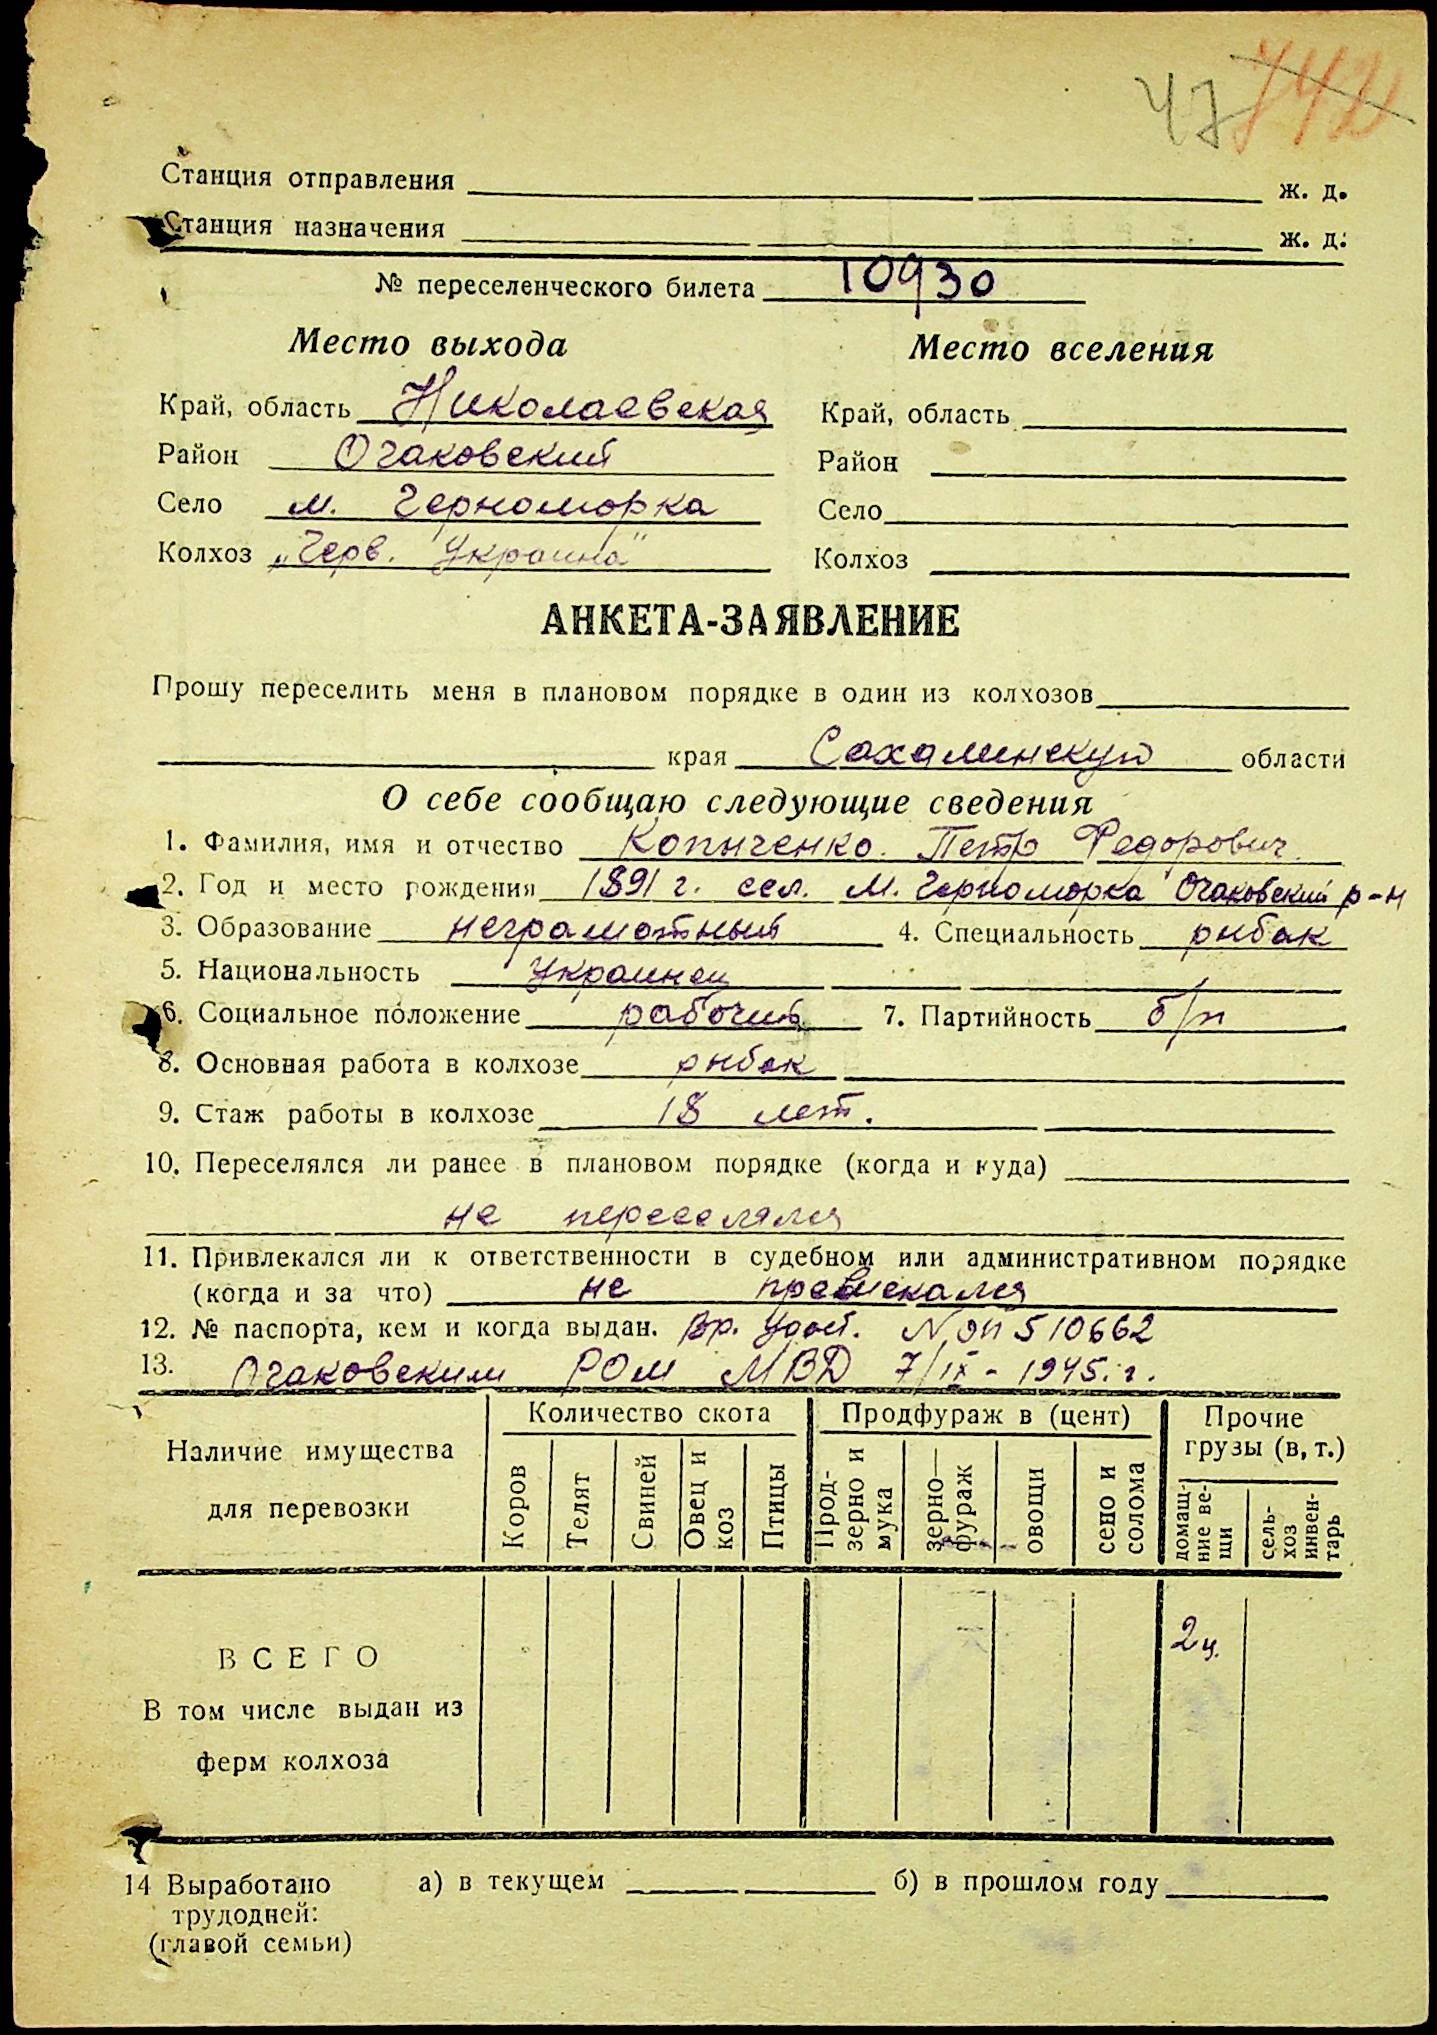 47 742
Станция отправления ж. д.
Станция назначения ж. д.
№ переселенческого билета 10930
Место выхода Место вселения
Край, область Николаевская Край, область
Район Очаковский Район
Село м. Черноморка Село
Колхоз „Черв. Украина" Колхоз
АНКЕТА-ЗАЯВЛЕНИЕ
Прошу переселить меня в плановом порядке в один из колхозов
края Сахалинскую области
О себе сообщаю следующие сведения
1. Фамилия, имя и отчество Копыченко Петр Федорович
2. Год и место рождения 1891 г. сел. М. Черноморка Очаковский р-н
3. Образование неграмотный 4. Специальность рыбак
5. Национальность украинец
6. Социальное положение рабочий 7. Партийность б/п
8. Основная работа в колхозе рыбак
9. Стаж работы в колхозе 18 лет.
10. Переселялся ли ранее в плановом порядке (когда и куда)
не переселялся
11. Привлекался ли к ответственности в судебном или административном порядке
(когда и за что) не превлекался
12. № паспорта, кем и когда выдан. Вр. Удост. № ЭП 510662
13. Очаковским РОМ МВД 7/IX - 1945. г.
Наличие имущества для перевозки
Количество скота Продфураж в (цент) Прочие грузы (в, т.)
Коров Телят Свиней Овец и коз Птицы Прод-зерно и мука зерно—фураж овощи сено и солома домащ-ние ве-щи сель-хоз инвен-тарь
ВСЕГО 2ц.
В том числе выдан из
ферм колхоза
14 Выработано а) в текущем б) в прошлом году
трудодней:
(главой семьи)